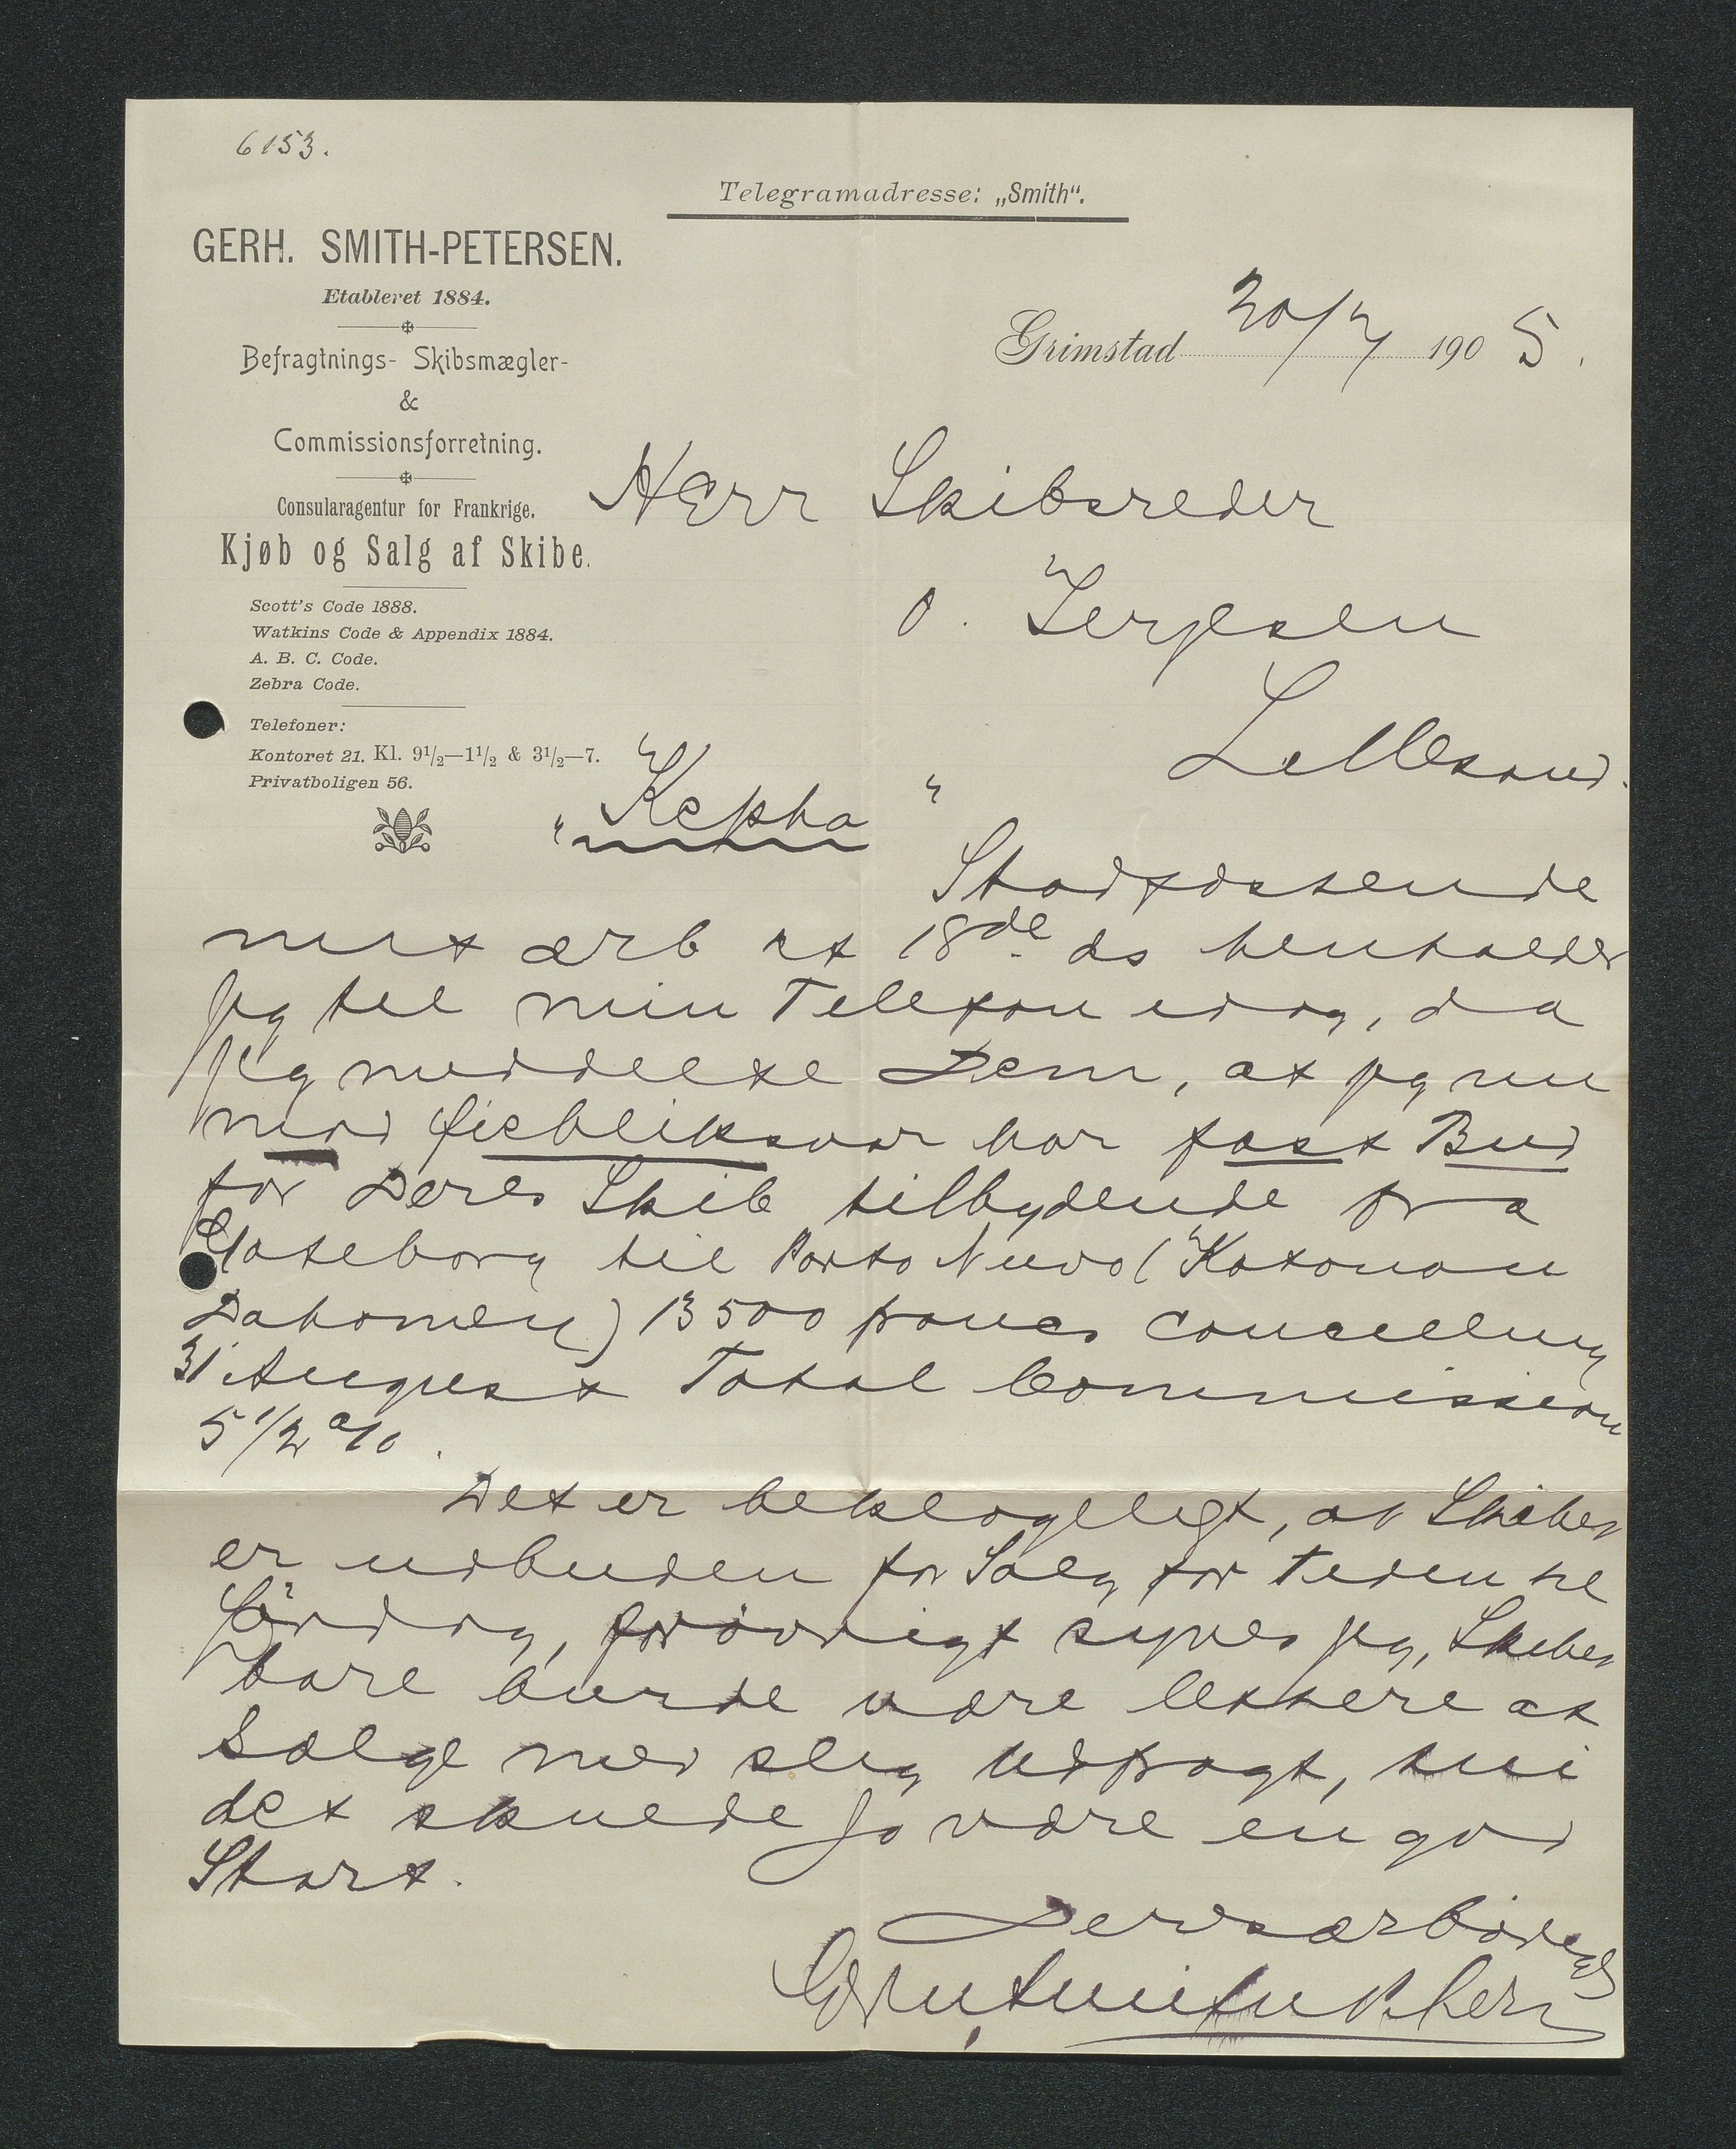 6153.
Telegramadresse: „Smith“.
GERH. SMITH-PETERSEN.
Etableret 1884.
Befragtnings- Skibsmægler-
&
Commissionsforretning.
Consularagentur for Frankrige.
Kjøb og Salg af Skibe.
Scott's Code 1888.
Watkins Code & Appendix 1884.
A. B. C. Code.
Zebra Code.
Telefoner:
Kontoret 21. Kl. 9½—1½ & 3½—7.
Privatboligen 56.
Grimstad 20/7 1905.
Herr Skibsreder
O. Terjesen
Lillesand.
"Kepha"
Stadfæstende
mit ærb af 18de ds henholder
jeg til min Telefon idag, da
jeg meddelte Dem, at jeg nu
mod Øiebliksvar har fast Bud
for Deres Skib tilbydende fra
Gøteborg til Porto Nuvo (Kotonou
Dahomey) 13500 francs cancelling
31 August Total Commission
5 1/2 %.
Det er beklageligt, at Skibet
er udbuden for Salg for Tiden til
Lørdag, forøvrigt synes jeg, Skibet
bare burde være lettere at
sælge med slig Udfragt, thi
det skulde jo være en god
Start.
Deres ærbødigst
Gerh Smith Petersen